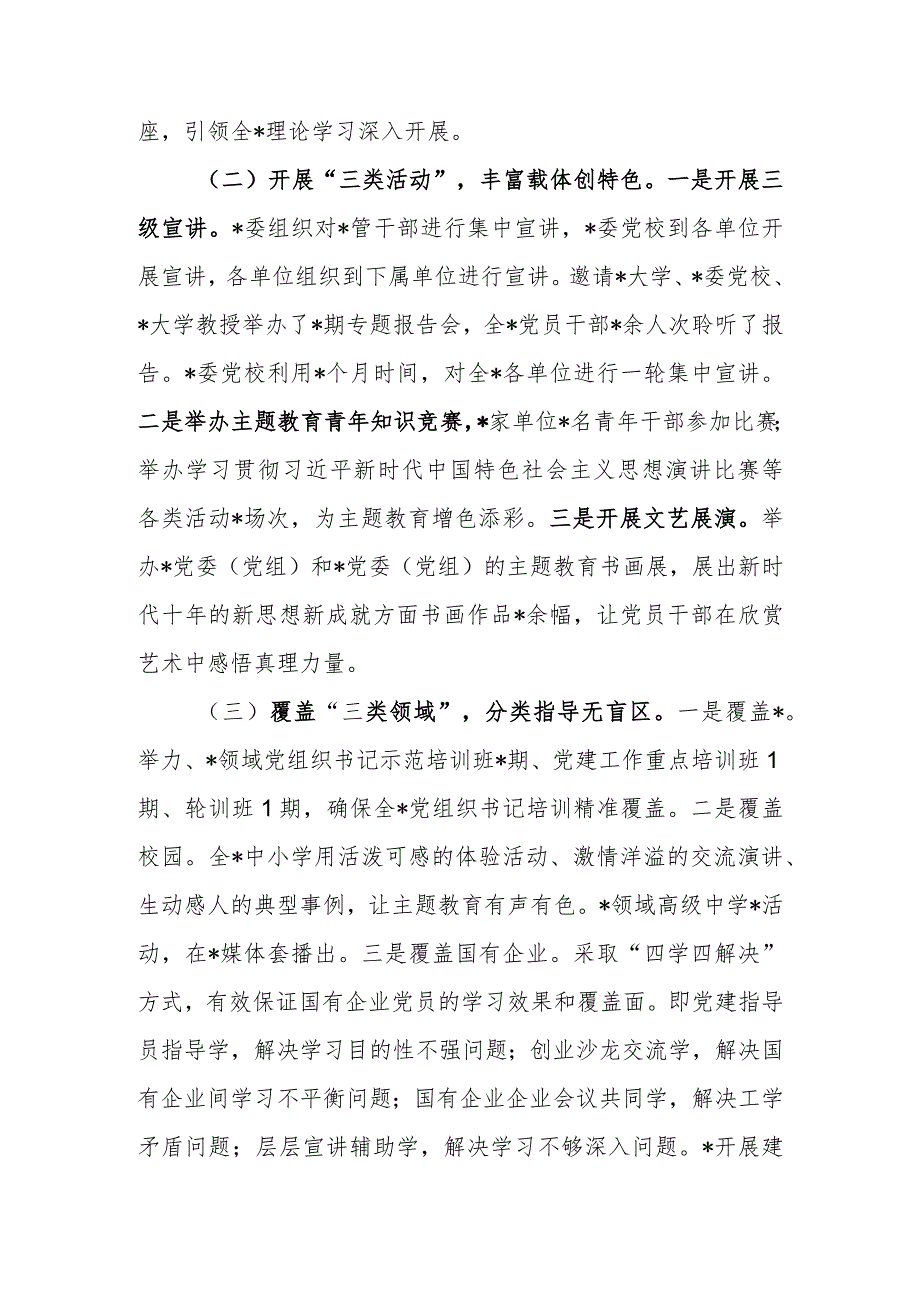 座，引领全*理论学习深入开展。
（二）开展“三类活动”，丰富载体创特色。一是开展三
级宣讲。*委组织对*管干部进行集中宣讲，*委党校到各单位开
展宣讲，各单位组织到下属单位进行宣讲。邀请*大学、*委党校、
*大学教授举办了*期专题报告会，全*党员干部*余人次聆听了报
告。*委党校利用*个月时间，对全*各单位进行一轮集中宣讲。
二是举办主题教育青年知识竞赛，*家单位*名青年干部参加比赛；
举办学习贯彻习近平新时代中国特色社会主义思想演讲比赛等
各类活动*场次，为主题教育增色添彩。三是开展文艺展演。举
办*党委（党组）和*党委（党组）的主题教育书画展，展出新时
代十年的新思想新成就方面书画作品*余幅，让党员干部在欣赏
艺术中感悟真理力量。
（三）覆盖“三类领域”，分类指导无盲区。一是覆盖*。
举力、*领域党组织书记示范培训班*期、党建工作重点培训班1
期、轮训班1期，确保全*党组织书记培训精准覆盖。二是覆盖
校园。全*中小学用活泼可感的体验活动、激情洋溢的交流演讲、
生动感人的典型事例，让主题教育有声有色。*领域高级中学*活
动，在*媒体套播出。三是覆盖国有企业。采取“四学四解决”
方式，有效保证国有企业党员的学习效果和覆盖面。即党建指导
员指导学，解决学习目的性不强问题；创业沙龙交流学，解决国
有企业间学习不平衡问题；国有企业企业会议共同学，解决工学
矛盾问题；层层宣讲辅助学，解决学习不够深入问题。*开展建